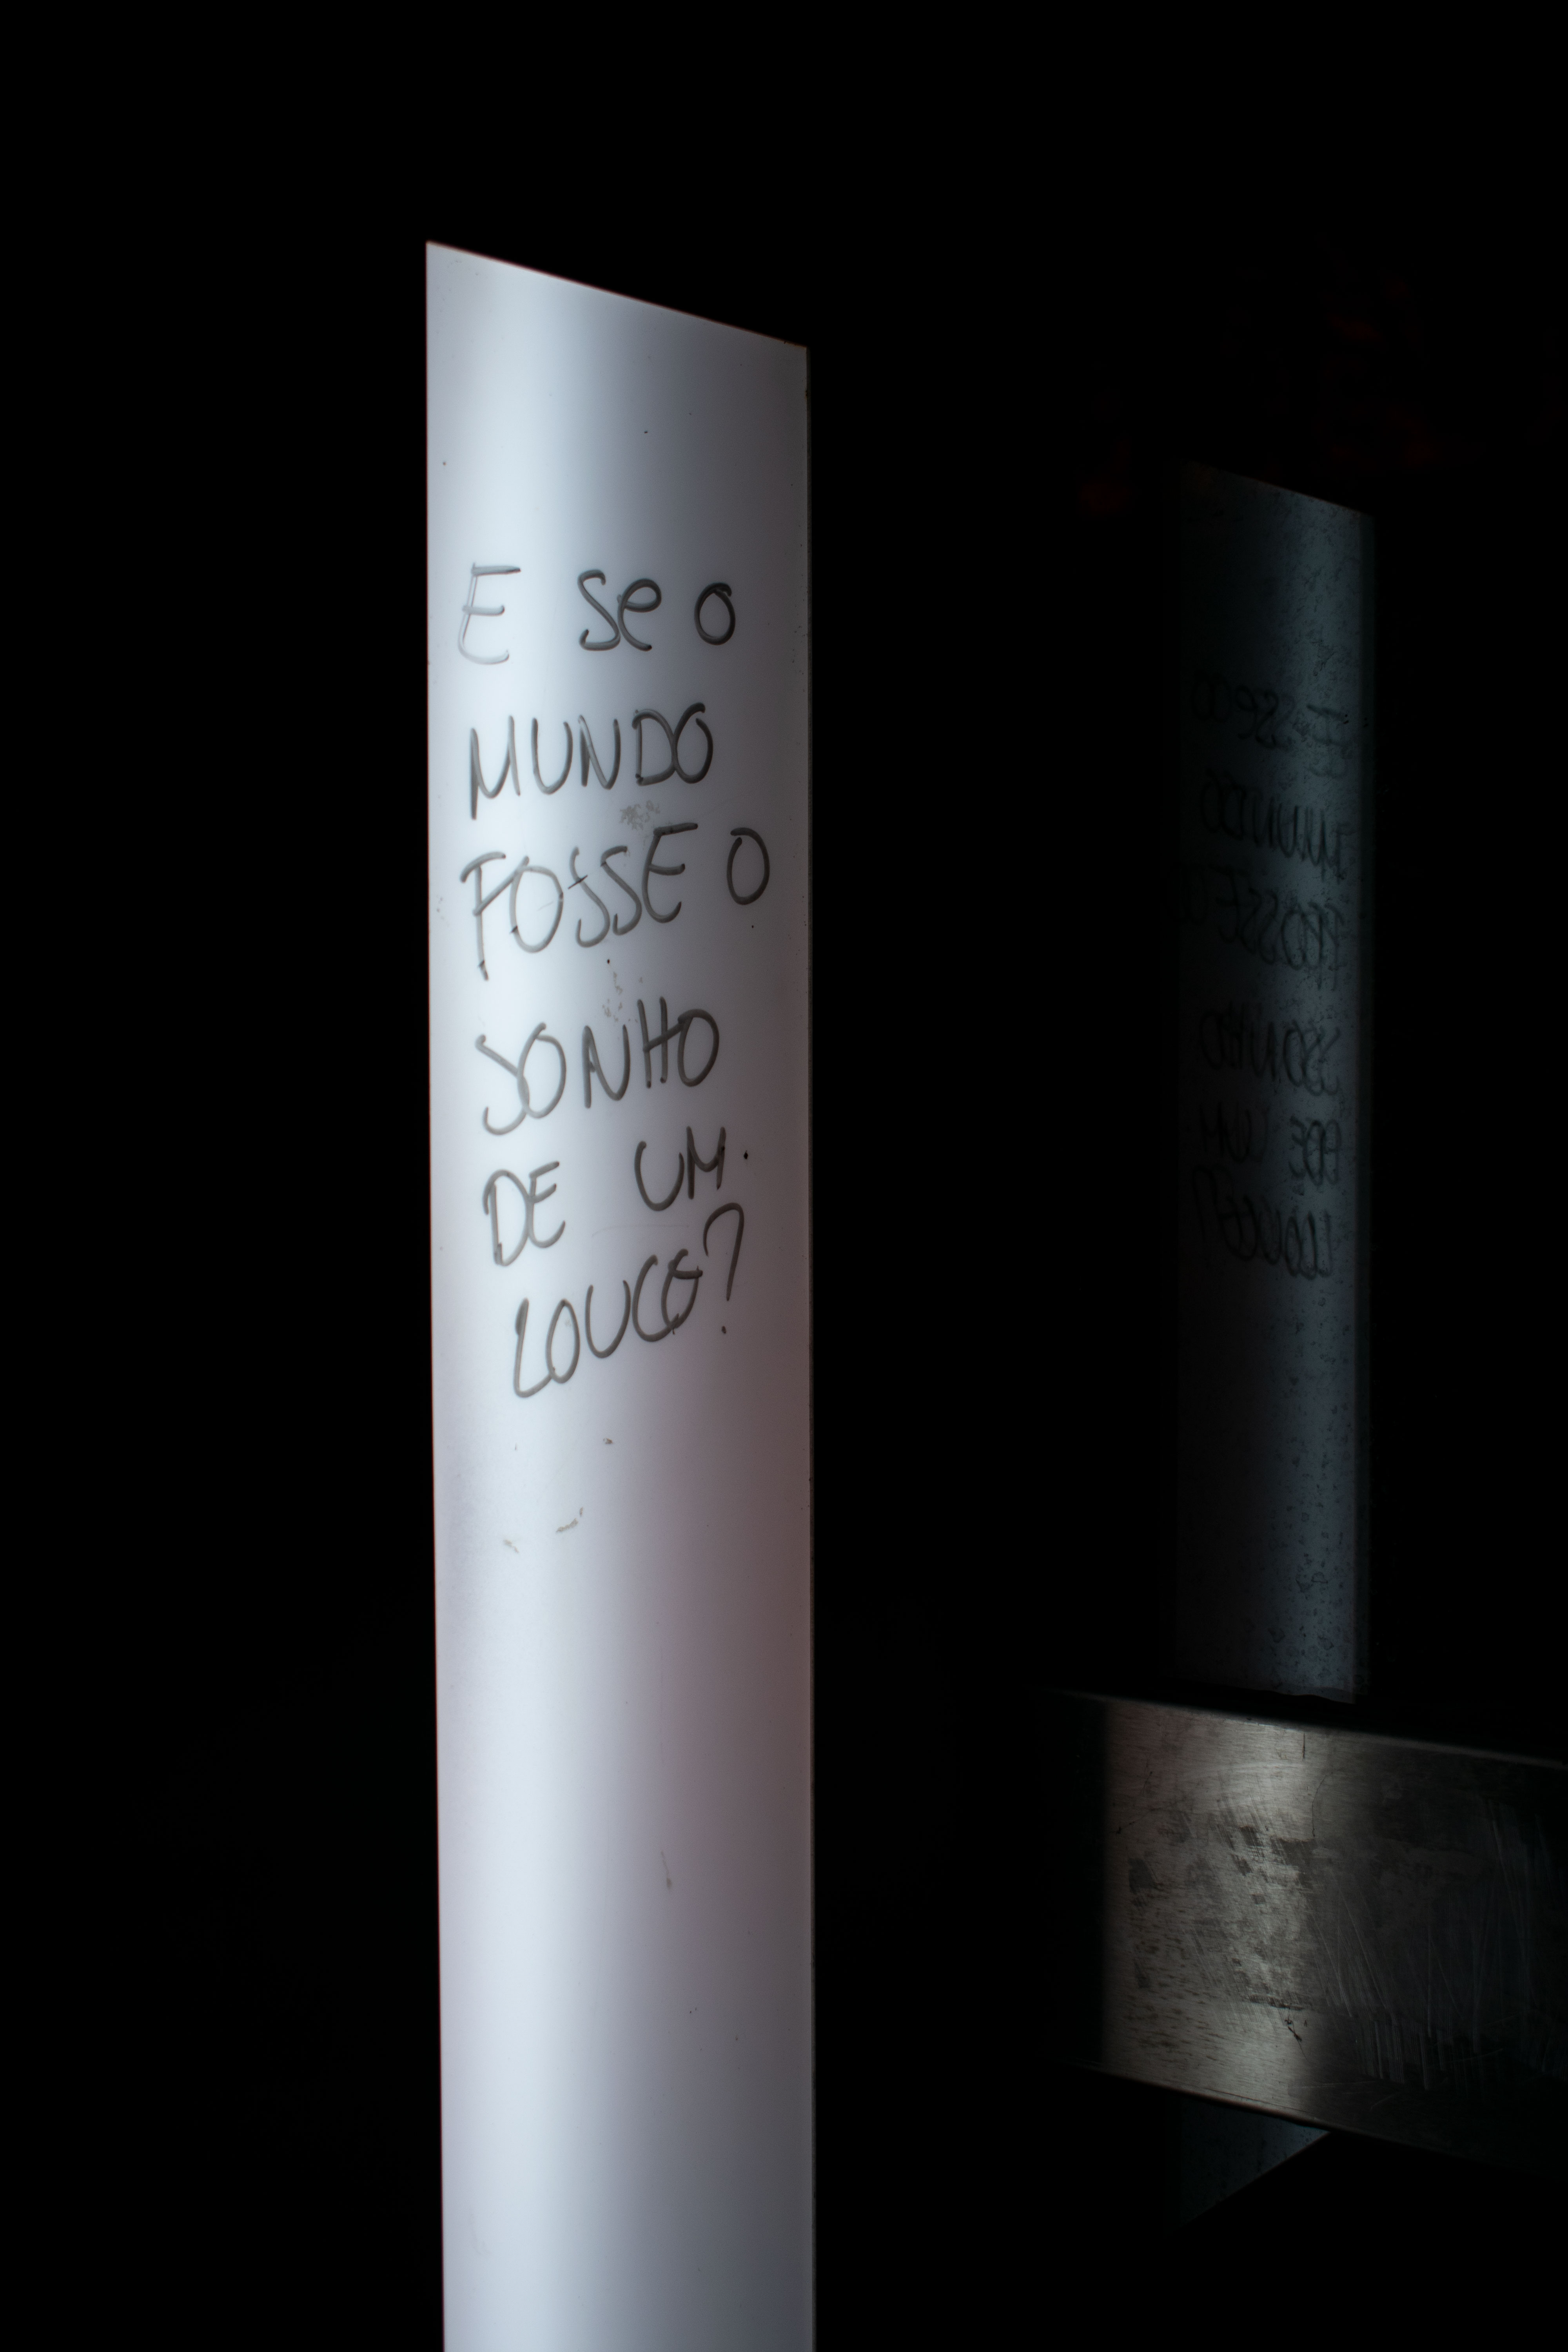 E Se O
MUNDO
FOSSE O
SONHO
DE UM
LOUCO?